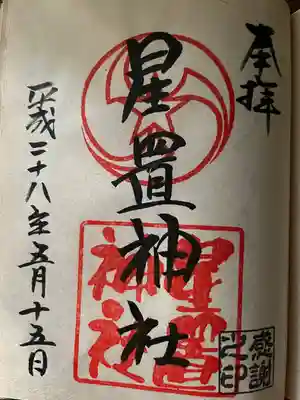 奉拝
星置神社
星置神社
感謝之印
平成二十八年五月十五日